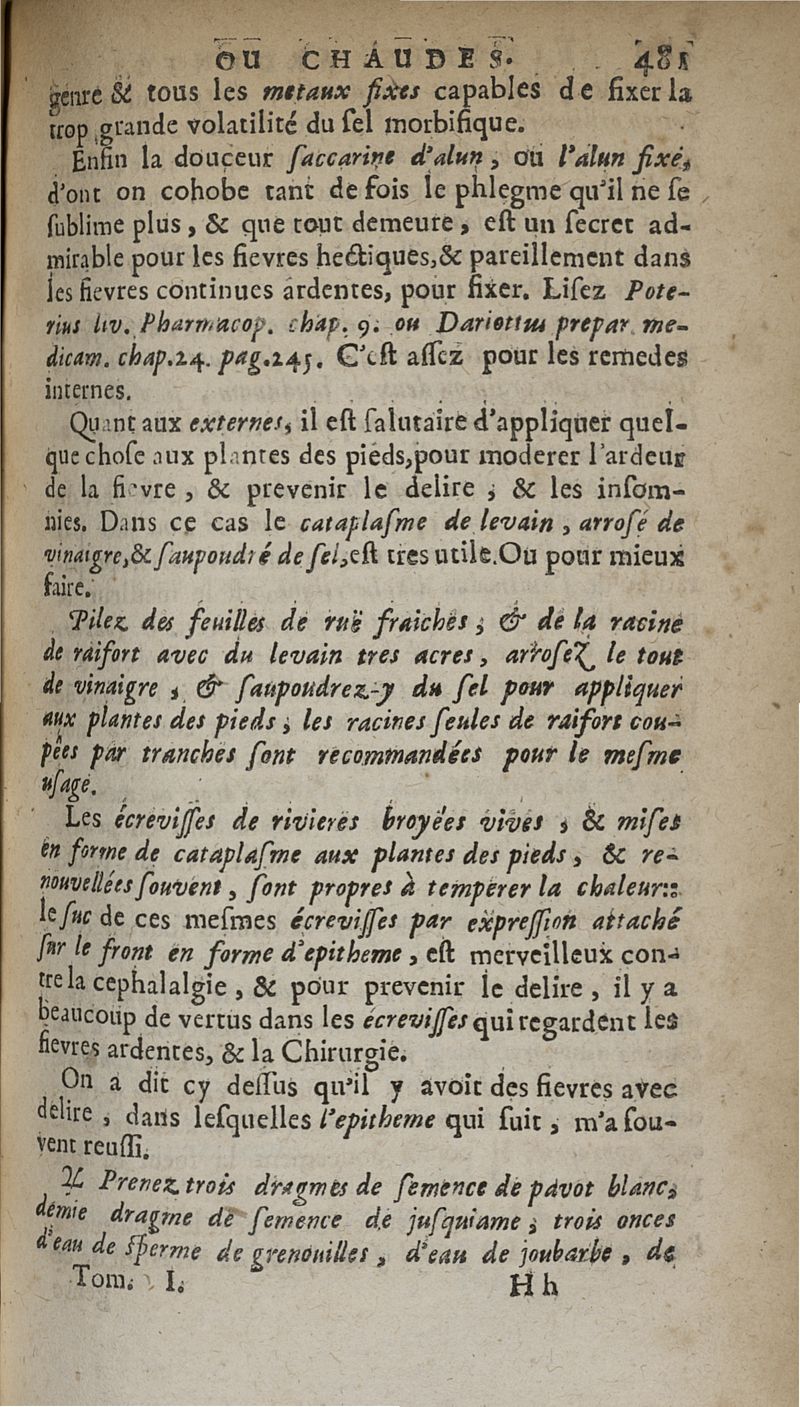 OU CHAUDES. 481
genre & tous les metaux fixes capables de fixer la
trop grande volatilité du ſel morbifique.
Enfin la douceur ſaccarine d'alun, ou l'alun fixé,
d'ont on cohobe tant de fois le phlegme qu'il ne ſe
ſublime plus, & que tout demeure, eſt un ſecret ad-
mirable pour les fievres hectiques,& pareillement dans
les fievres continues ardentes, pour fixer. Liſez Pote-
rius liv. Pharmacop. chap. 9. ou Dariottus prepar. me-
dicam. chap.24. pag.245. C'eſt aſſez pour les remedes
internes.
Quant aux externes, il eſt ſalutaire d'appliquer quel-
que choſe aux plantes des pieds,pour moderer l'ardeur
de la fievre, & prevenir le delire ; & les inſom-
nies. Dans ce cas le cataplaſme de levain, arroſé de
vinaigre,& ſaupoudré de ſel,eſt tres utile.Ou pour mieux
faire.
Pilez des feuilles de ruë fraiches ; & de la racine
de raifort avec du levain tres acres, arroſez le tout
de vinaigre ; & ſaupoudrez-y du ſel pour appliquer
aux plantes des pieds ; les racines ſeules de raifort cou-
pées par tranches ſont recommandées pour le meſme
uſage.
Les écreviſſes de rivieres broyées vives ; & miſes
en forme de cataplaſme aux plantes des pieds, & re-
nouvellées ſouvent, ſont propres à temperer la chaleur::
le ſuc de ces meſmes écreviſſes par expreſſion attaché
ſur le front en forme d'epitheme, eſt merveilleux con-
tre la cephalalgie, & pour prevenir le delire, il y a
beaucoup de vertus dans les écreviſſes qui regardent les
fievres ardentes, & la Chirurgie.
On a dit cy deſſus qu'il y avoit des fievres avec
delire, dans leſquelles l'epitheme qui ſuit, m'a ſou-
vent reuſſi.
♃ Prenez trois dragmes de ſemence de pavot blanc,
demie dragme de ſemence de juſquiame ; trois onces
d'eau de ſperme de grenouilles, d'eau de joubarbe, de
Tom. I. H h